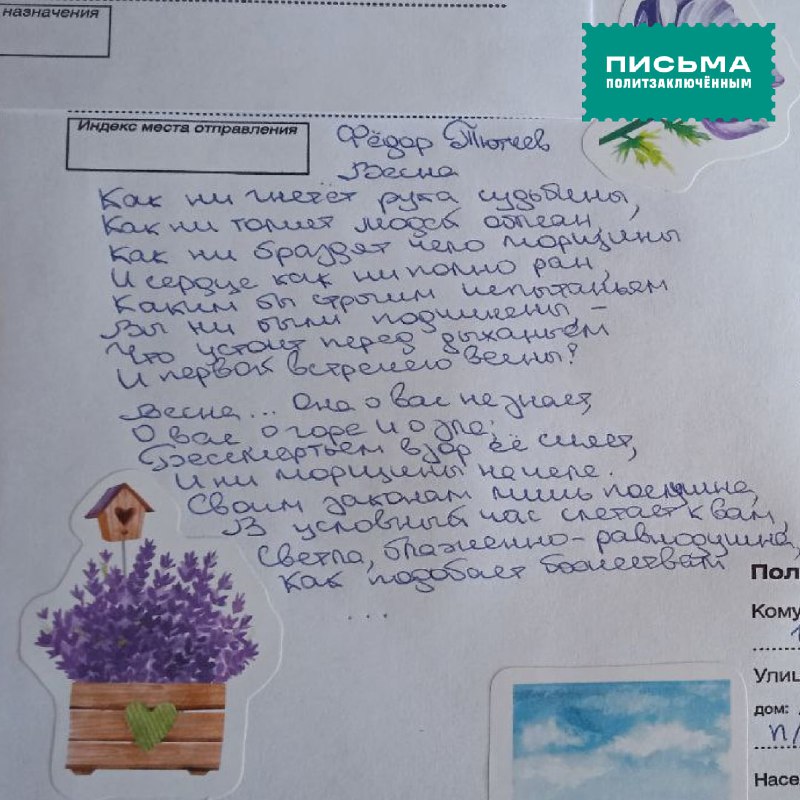 назначения
ПИСЬМА
ПОЛИТЗАКЛЮЧЁННЫМ
Индекс места отправления
Фёдор Тютчев
Весна
Как ни гнетёт рука судьбины,
Как ни томит людей обман,
Как ни браздят чело морщины
И сердце как ни полно ран,
Каким бы строгим испытаньем
Вы ни были подчинены, –
Что устоит перед дыханьем
И первой встречею весны?
Весна... Она о вас не знает,
О вас, о горе и о зле;
Бессмертьем взор её сияет,
И ни морщины на челе.
Своим законам лишь послушна,
В условный час слетает к вам,
Светла, блаженно-равнодушна,
Как подобает божествам
...
Пол
Кому
Улиц
дом:
п/
Насе